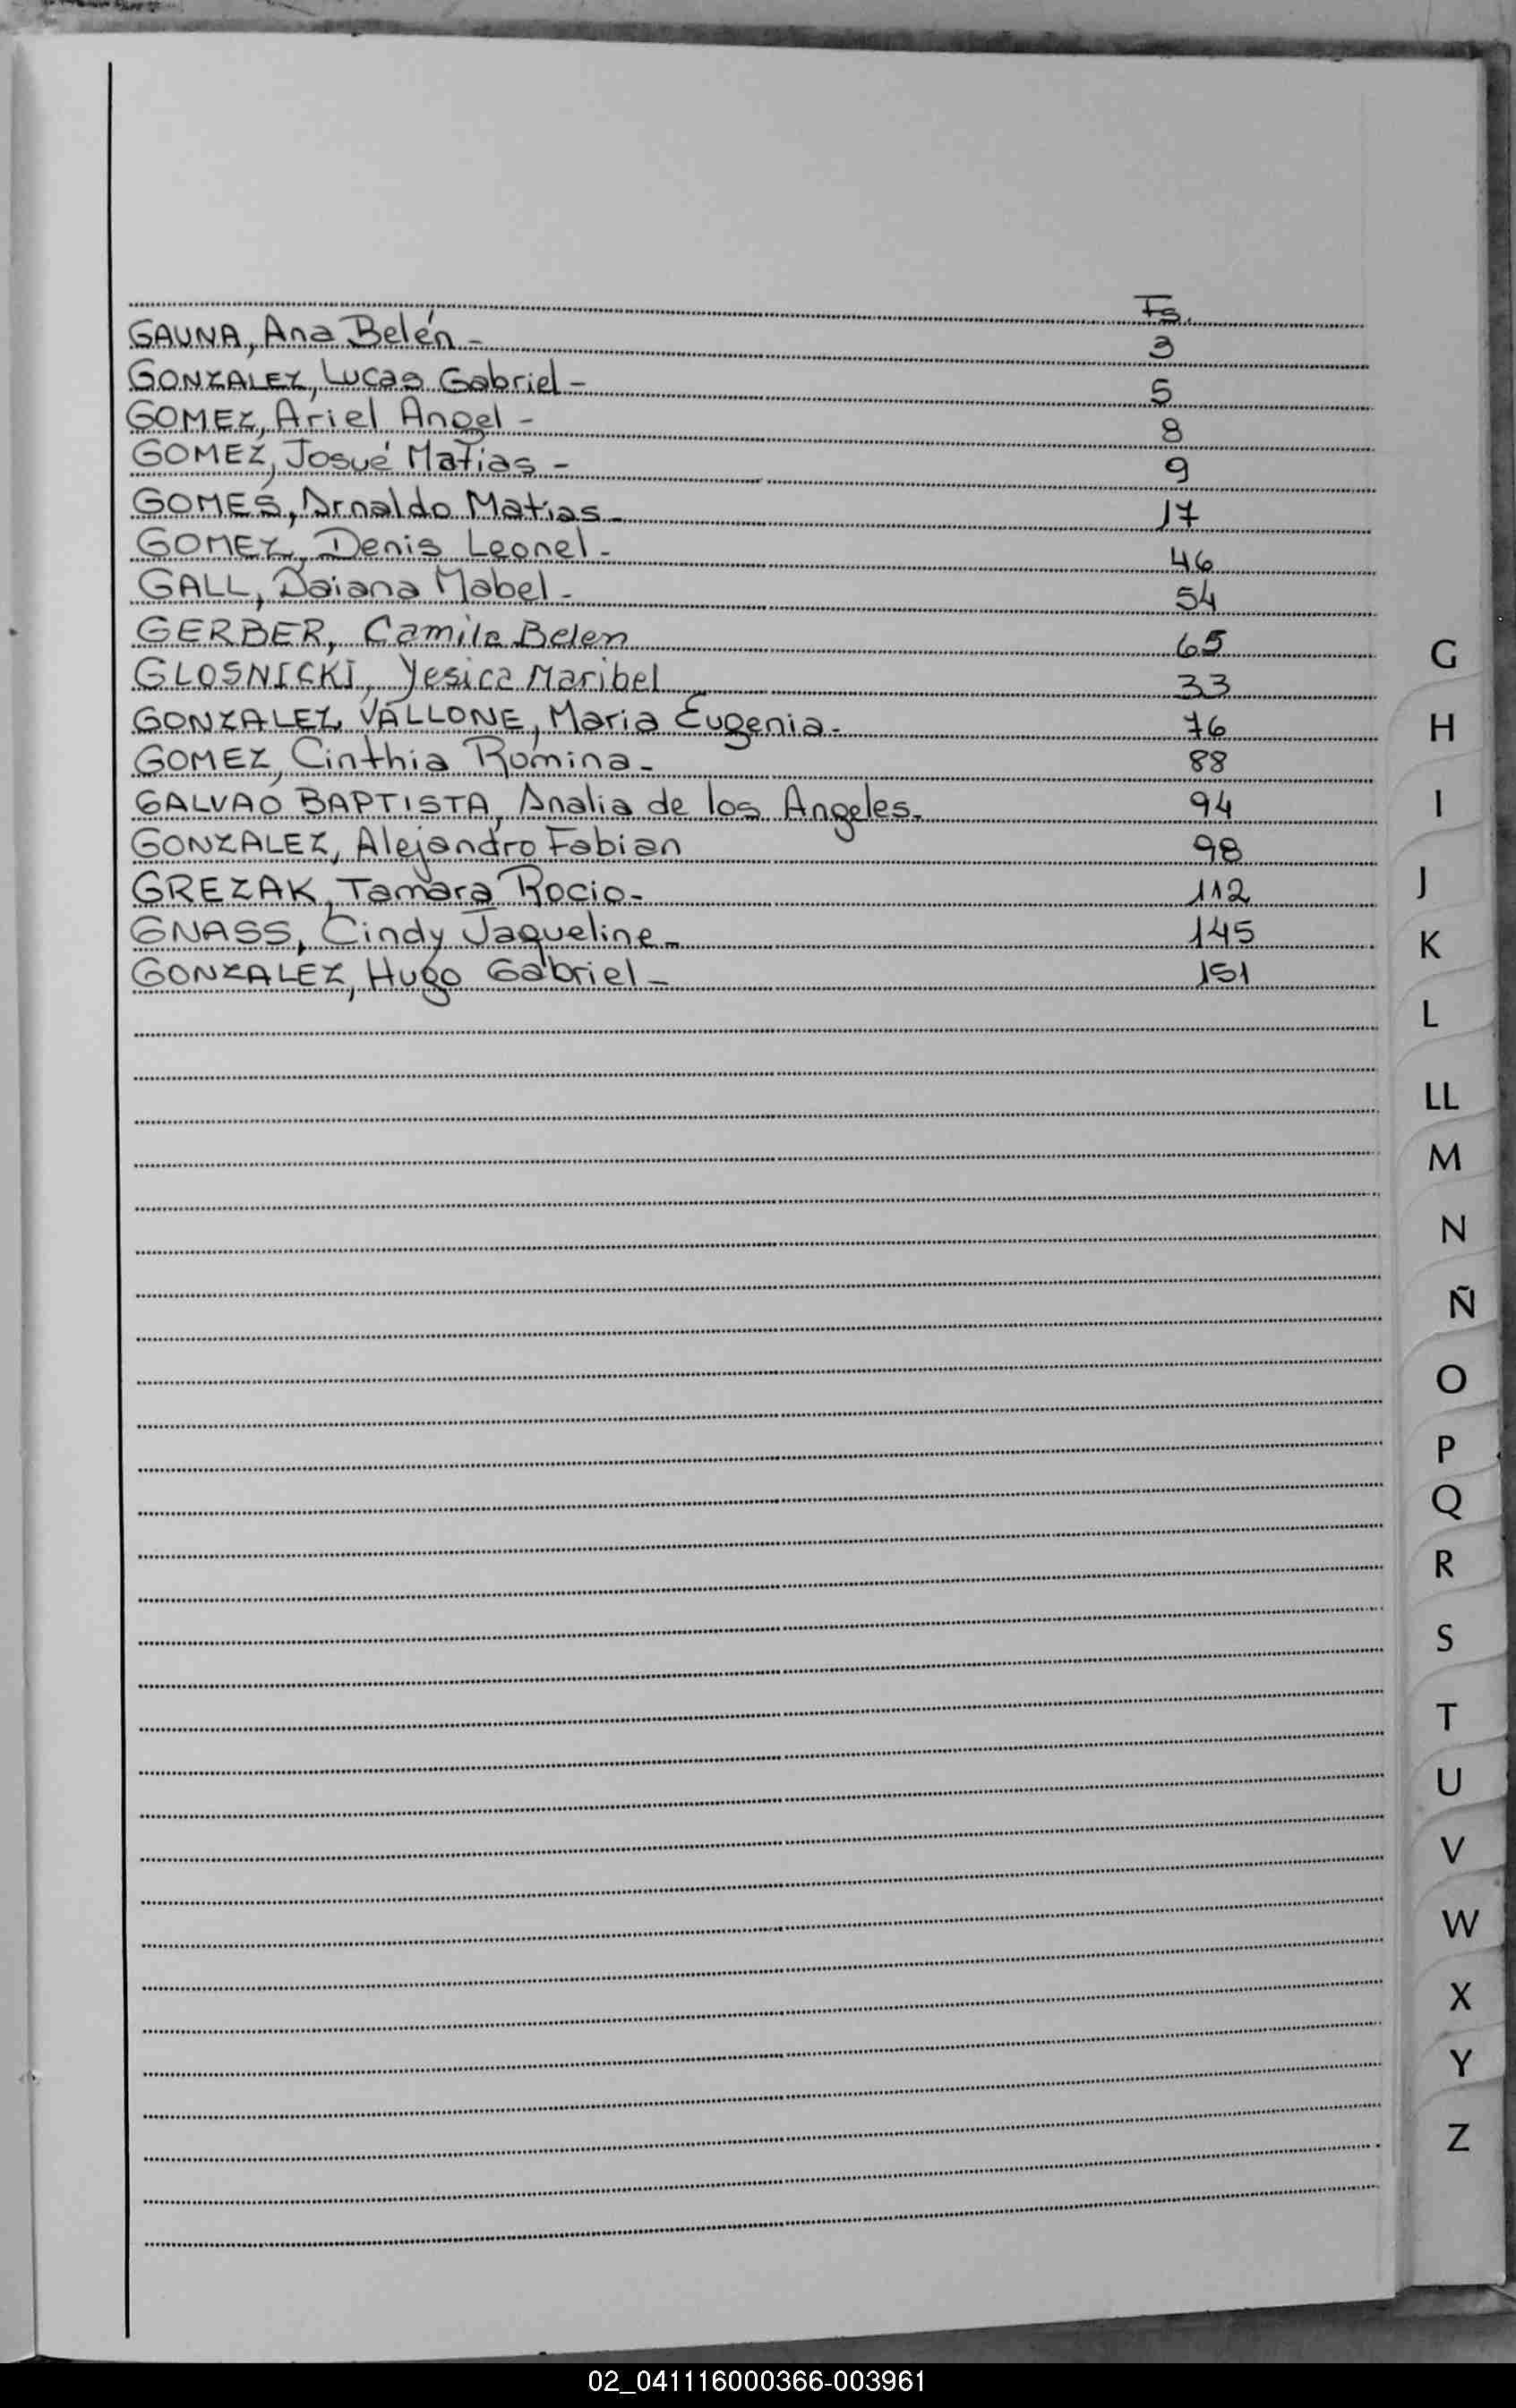 Fs.
GAUNA, Ana Belén - 3
GONZALEZ, Lucas Gabriel - 5
GOMEZ, Ariel Angel - 8
GOMEZ, Josué Matias - 9
GOMES, Arnaldo Matias - 17
GOMEZ, Denis Leonel - 46
GALL, Daiana Mabel - 54
GERBER, Camila Belen 65
GLOSNICKI, Yesica Maribel 33
GONZALEZ VALLONE, Maria Eugenia - 76
GOMEZ, Cinthia Romina - 88
GALVAO BAPTISTA, Analia de los Angeles - 94
GONZALEZ, Alejandro Fabian 98
GREZAK, Tamara Rocio - 112
GNASS, Cindy Jaqueline - 145
GONZALEZ, Hugo Gabriel - 151
G
H
I
J
K
L
LL
M
N
Ñ
O
P
Q
R
S
T
U
V
W
X
Y
Z
02_041116000366-003961